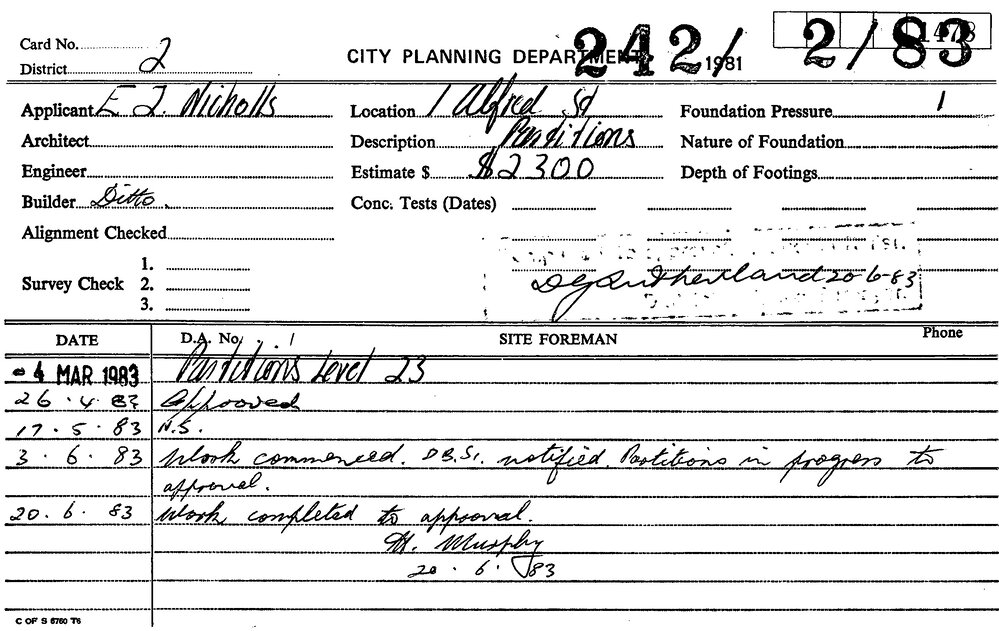 Card No. 242/ 2/83 1478
District 2 CITY PLANNING DEPARTMENT 1981
Applicant E J. Nicholls Location 1 Alfred St Foundation Pressure 1
Architect Description Partitions Nature of Foundation
Engineer Estimate $ $2300 Depth of Footings
Builder Ditto. Conc. Tests (Dates)
Alignment Checked
1.
Survey Check 2. DG Sutherland 20-6-83
3.
DATE D.A. No. SITE FOREMAN Phone
-4 MAR 1983 Partitions Level 23
26.4.83 Approved
17.5.83 N.S.
3.6.83 Work commenced. D.B.S. notified. Partitions in progress to
approval.
20.6.83 Work completed to approval.
Murphy
20.6.83
C OF S 6760 T6